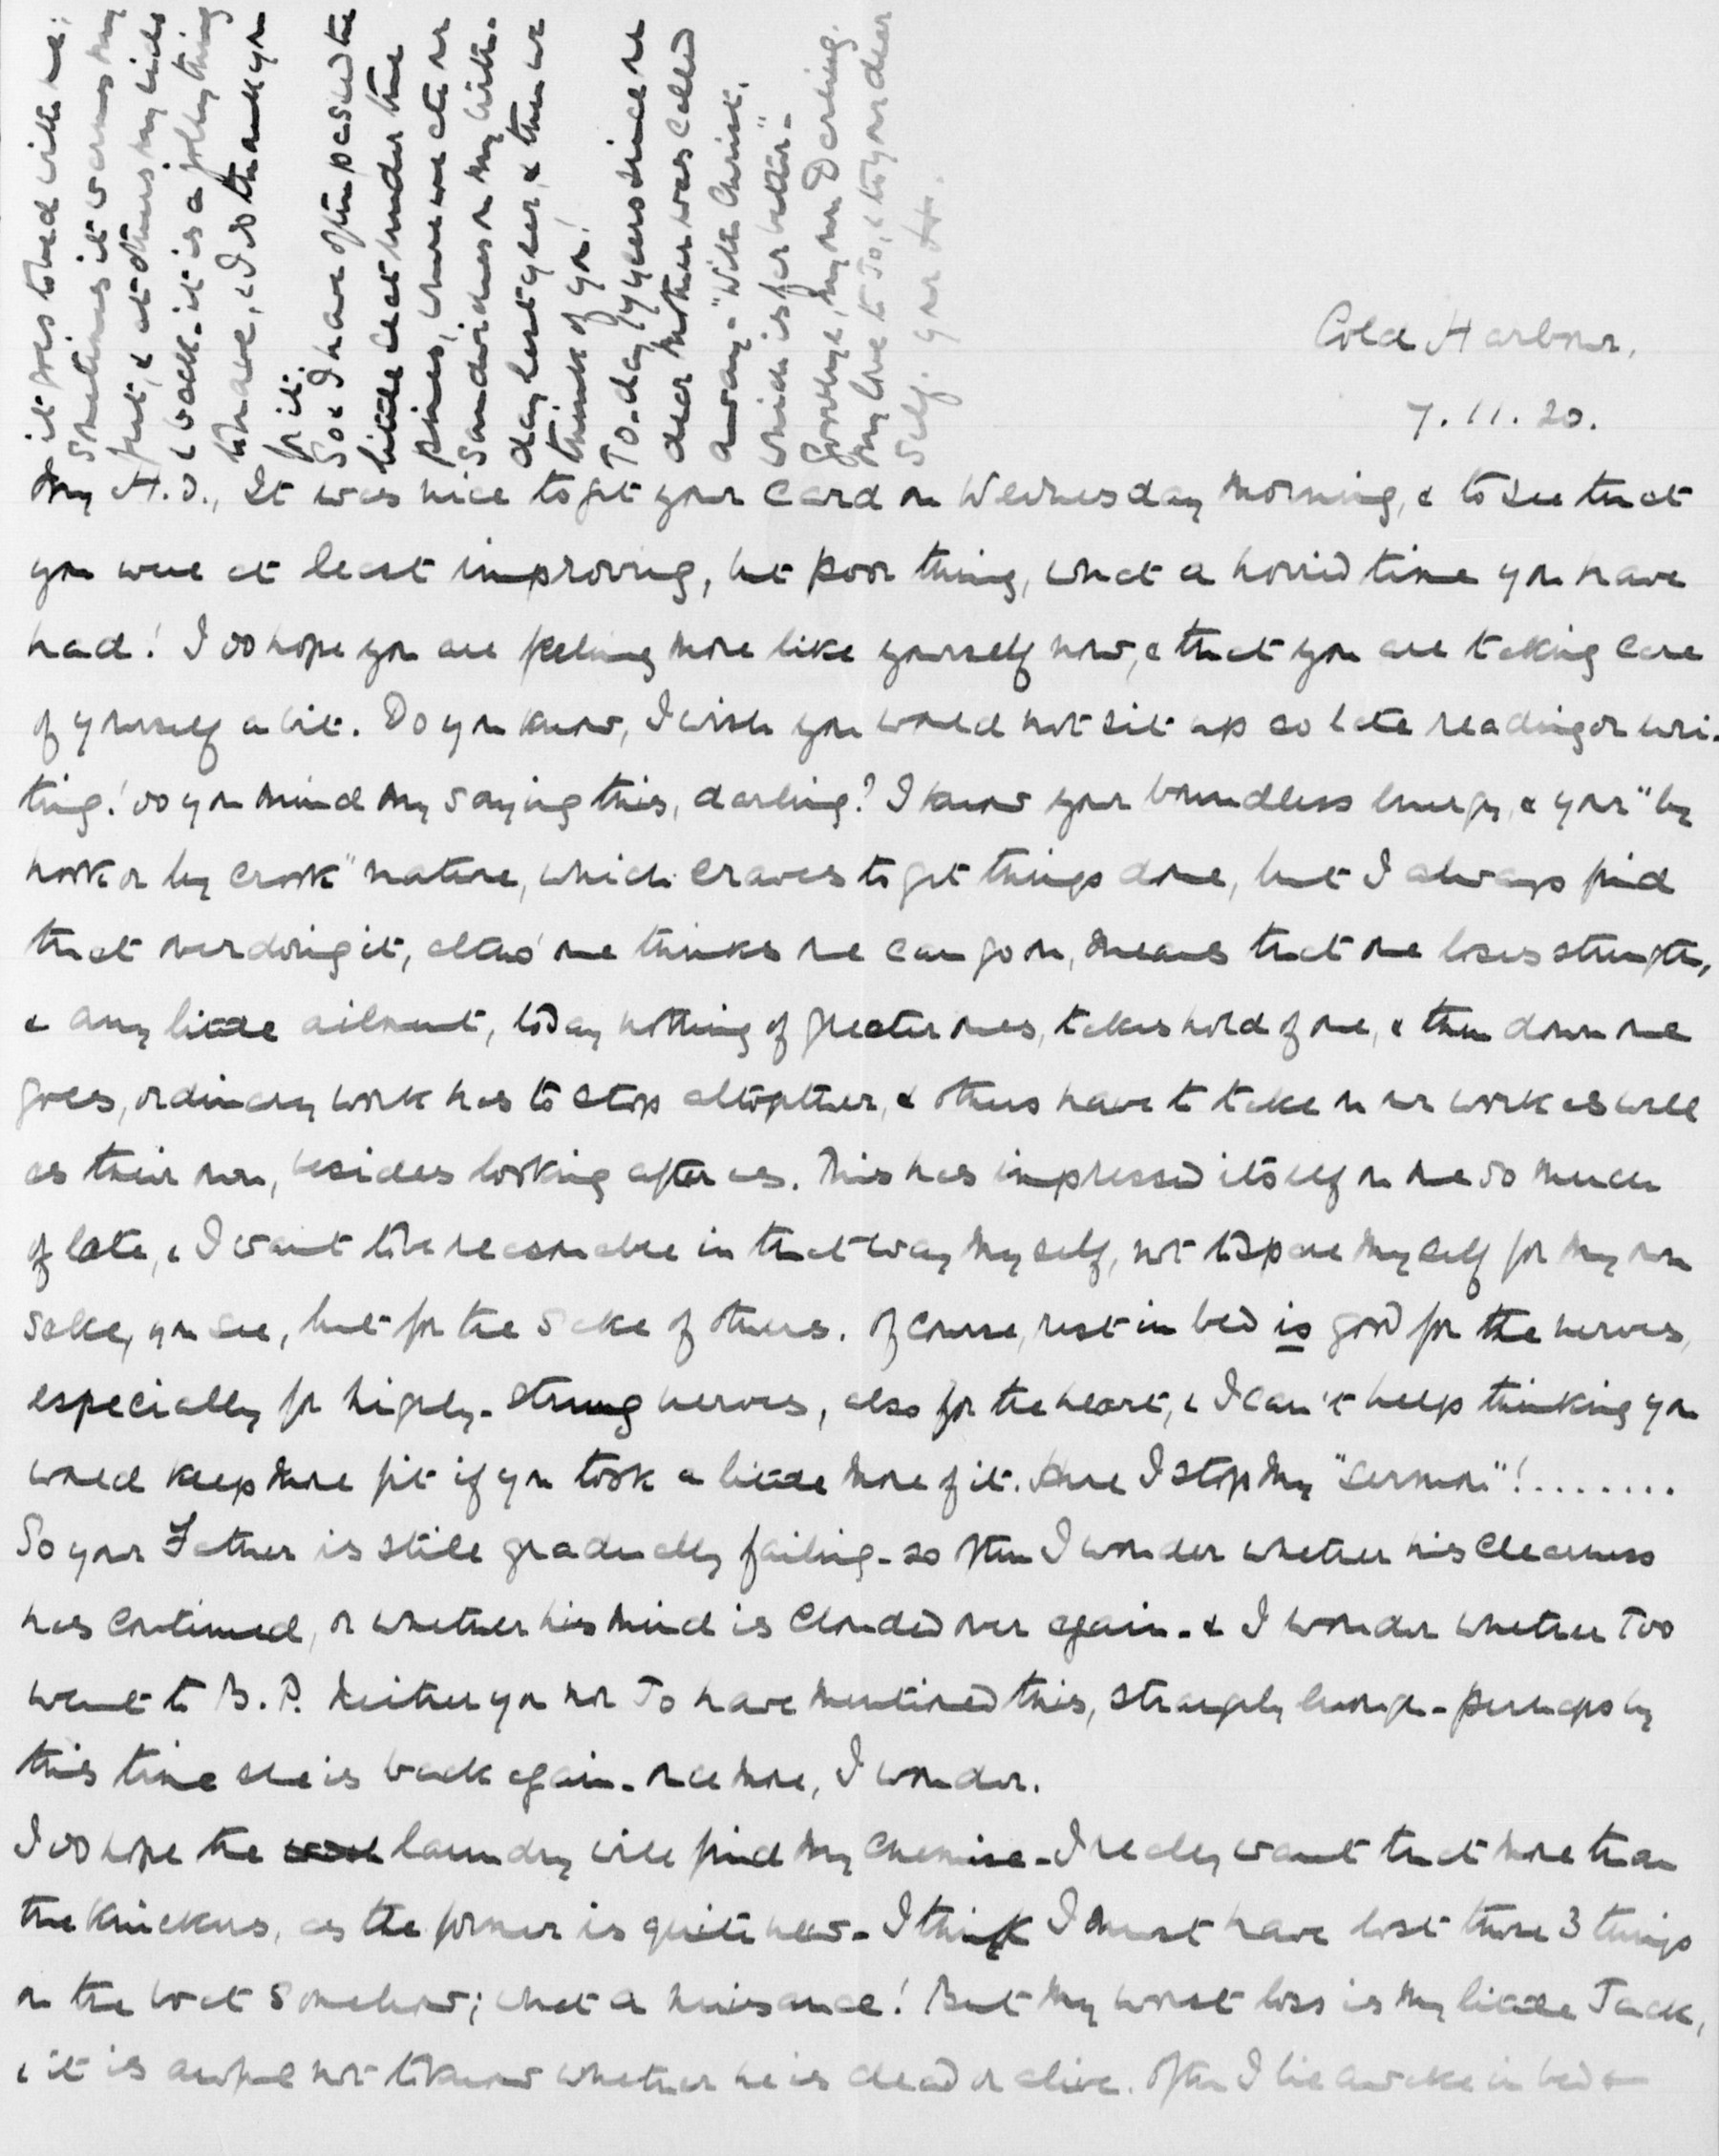 Cold Harbour.
7.11.20.
My H.D., It was nice to get your card on Wednesday morning, & to see that
you were at least improving, but poor thing, what a horrid time you have
had! I do hope you are feeling more like yourself now, & that you are taking care
of yourself a bit. Do you know, I wish you would not sit up so late reading or wri-
ting! Do you mind my saying this, darling? I know your boundless energy, & your "by
hook or by crook" nature, which craves to get things done, but I always find
that overdoing it, altho' one thinks one can go on, means that one loses strength,
& any little ailment, to say nothing of greater ones, takes hold of one, & then down one
goes, ordinary work has to stop altogether, & others have to take on our work as well
as their own, besides looking after us. This has impressed itself on me so much
of late, & I want to be reasonable in that way myself, not to spare myself for my own
sake, you see, but for the sake of others. Of course, rest in bed is good for the nerves,
especially for highly-strung nerves, also for the heart, & I can't help thinking you
would keep more fit if you took a little more of it. Here I stop my "sermon"!........
So your Father is still gradually failing - so often I wonder whether his clearness
has continued, or whether his mind is clouded over again - & I wonder whether Too
went to B.P. Neither you nor Jo have mentioned this, strangely enough - perhaps by
this time she is back again - once more, I wonder.
I do hope the laundry will find my chemise - I really want that more than
the knickers, as the former is quite new - I think I must have lost those 3 things
on the boat somehow; what a nuisance! But my worst loss is my little Jack,
& it is awful not to know whether he is dead or alive. Often I lie awake in bed &
it goes to bed with me;
Sometimes it warms my
feet, & at others my sides
& back - it is a jolly thing
to have, & I do thank you
for it.
So & I have often passed the
little seat under the
pines, where we ate our
Sandwiches on my birth-
day last year, & then we
think of you!
To-day 17 years since our
dear Mother was called
away - "With Christ,
which is far better" -
Goodbye, my own Darling.
My love to Jo, & to your dear
self. Your H.